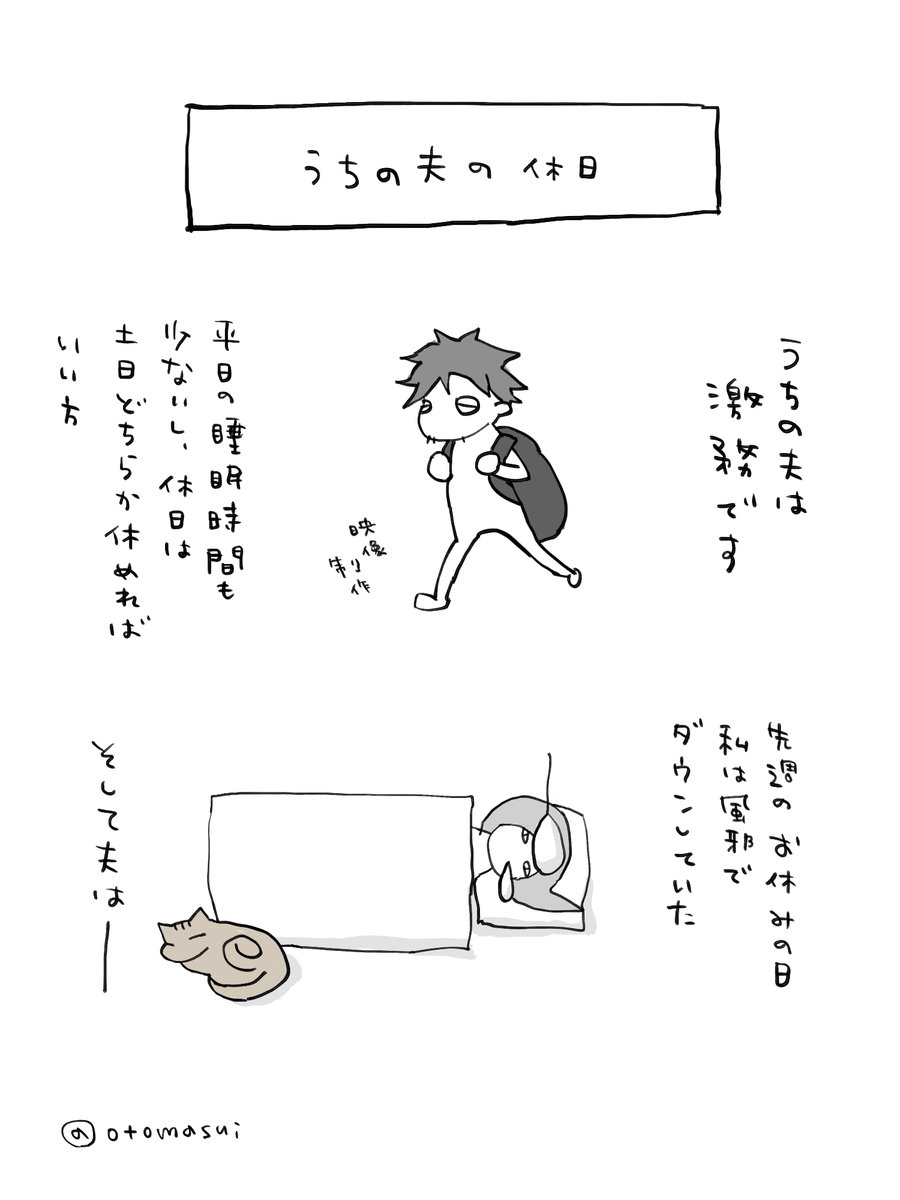 うちの夫の休日
うちの夫は
激務です
映像
制作
平日の睡眠時間も
少ないし、休日は
土日どちらか休めれば
いい方
先週のお休みの日
私は風邪で
ダウンしていた
そして夫は―
@otomasui